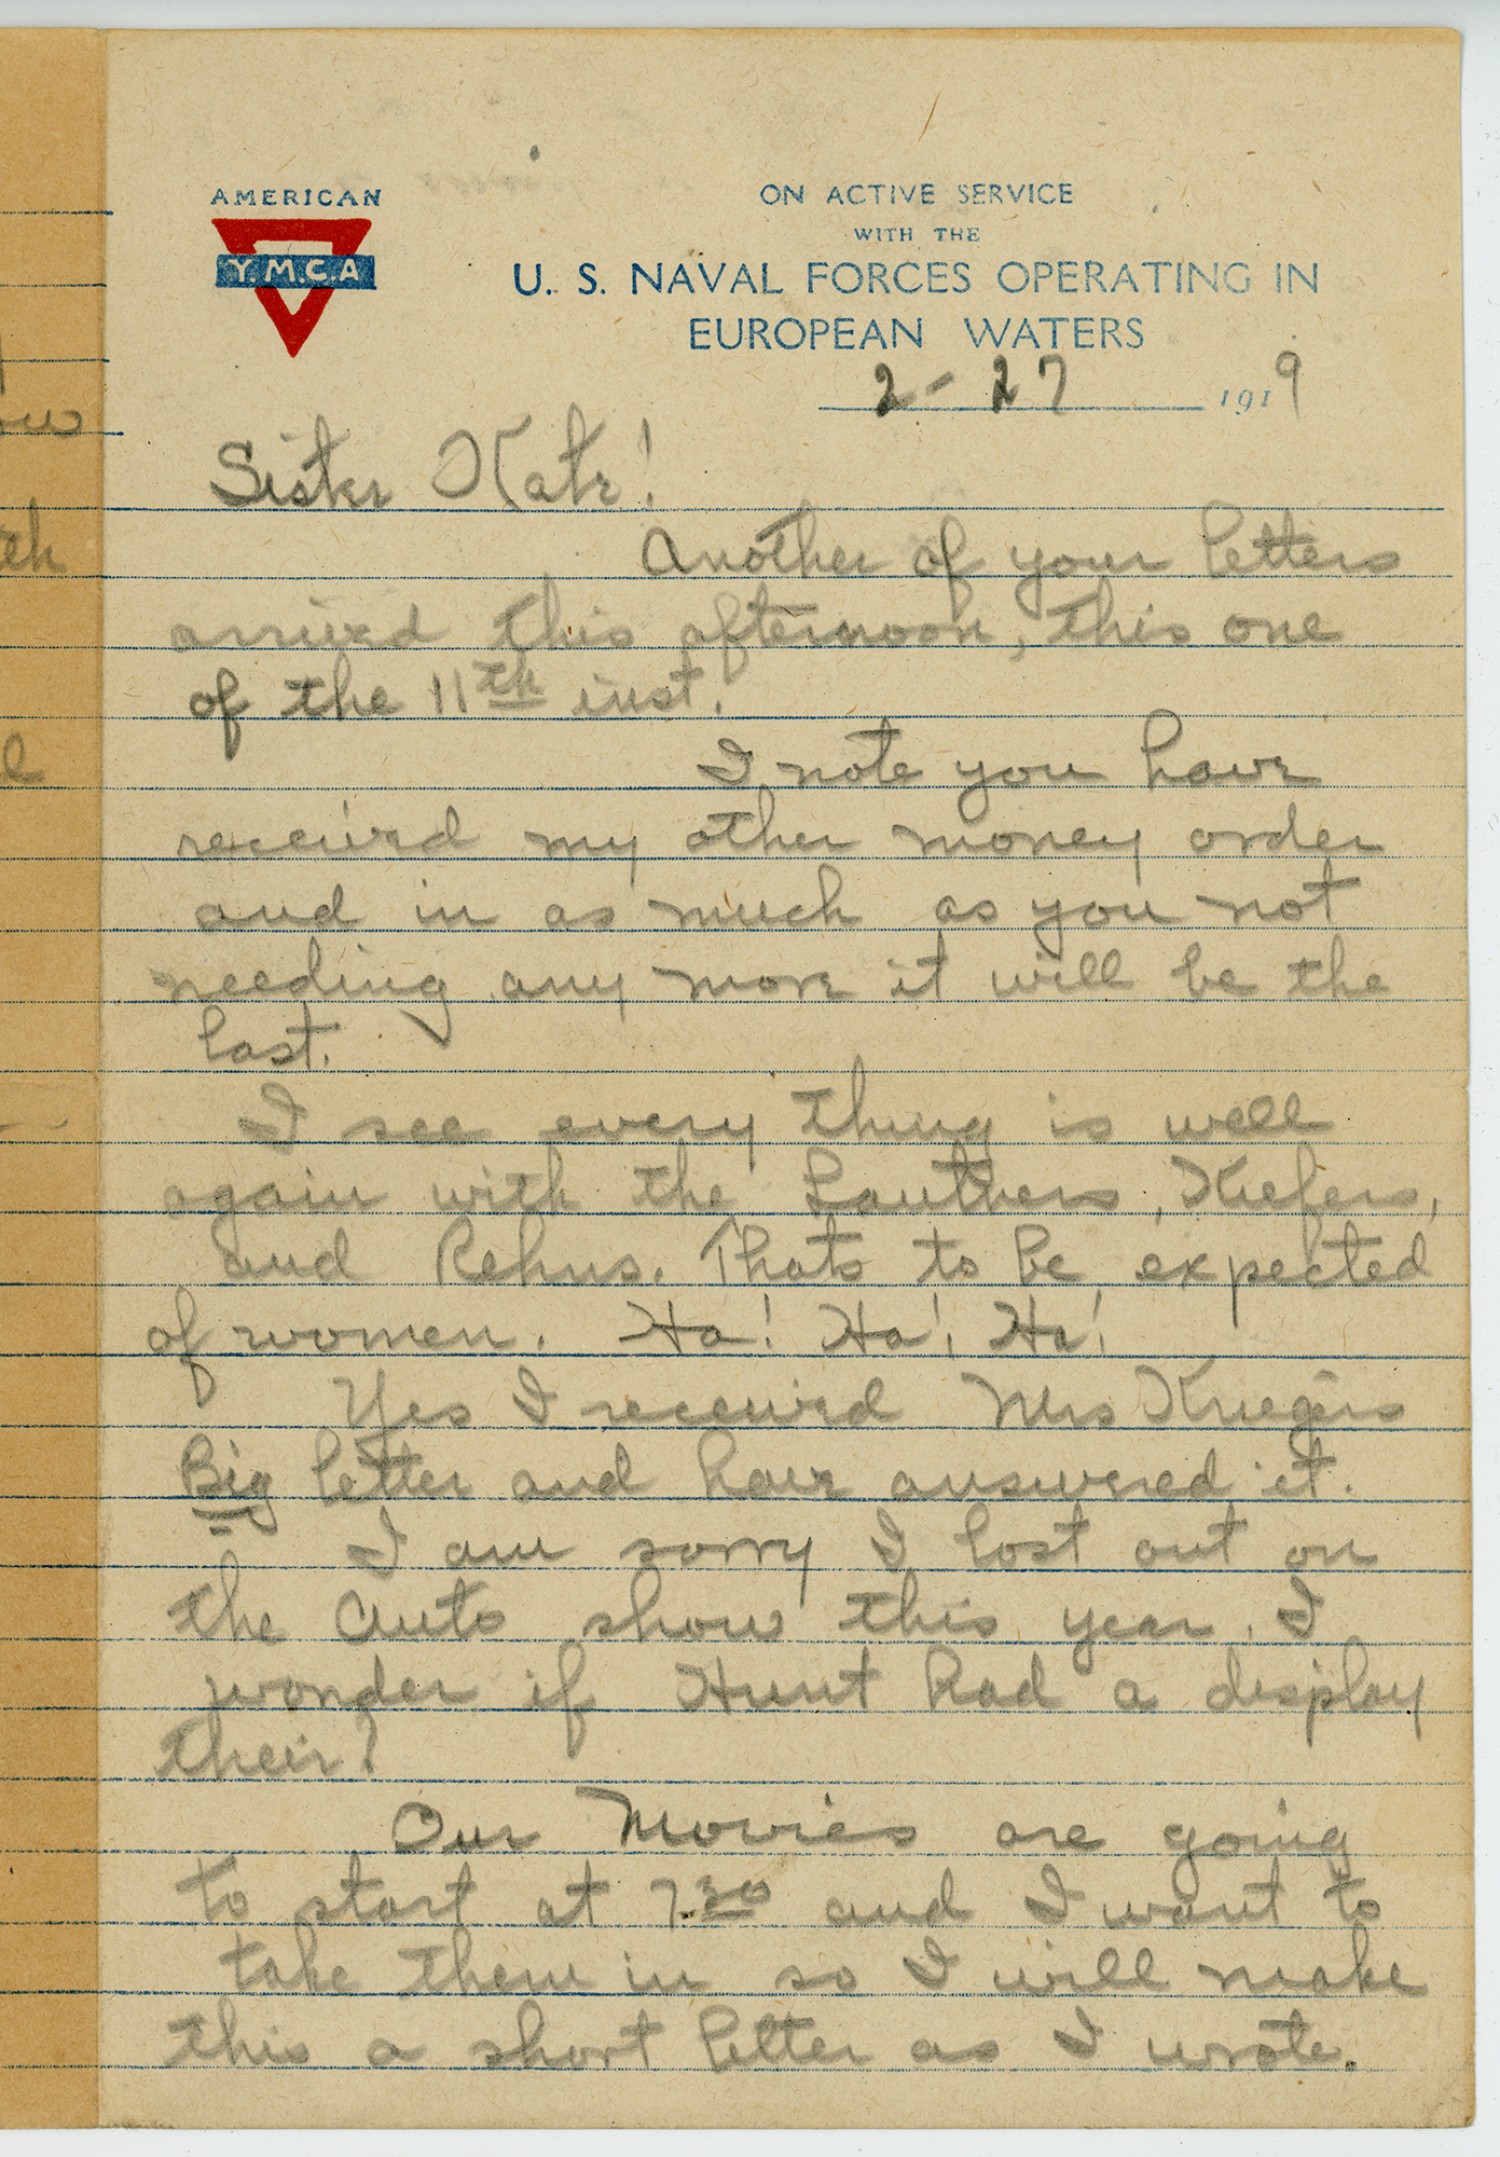 AMERICAN
Y.M.C.A
ON ACTIVE SERVICE
WITH THE
U. S. NAVAL FORCES OPERATING IN
EUROPEAN WATERS
2-27 1919
Sister Kate!
Another of your letters
arrived this afternoon, this one
of the 11th inst.
I note you have
received my other money order
and in as much as you not
needing any more it will be the
last.
I see every thing is well
again with the Lauthers, Kiefers,
and Rehus. Thats to be expected
of women. Ha! Ha! Ha!
Yes I received Mrs Kruegers
Big letter and have answered it.
I am sorry I lost out on
the Auto show this year. I
wonder if Hunt had a display
their?
Our Movies are going
to start at 7.30 and I want to
take them in so I will make
this a short letter as I wrote.